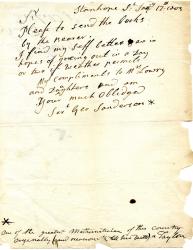 Stanhope St. Sep 17th 1803
Sir
Please to send the books
by the bearer.
I find my self better and in
hopes of going out in a Day
or two if weather permits
My Compliments to Mr Lowry
and Daughters and am
Your much Obliged
Servt Geo Sanderson
*
* one of the greatest Mathematicians of this Country
originally a
Taylor